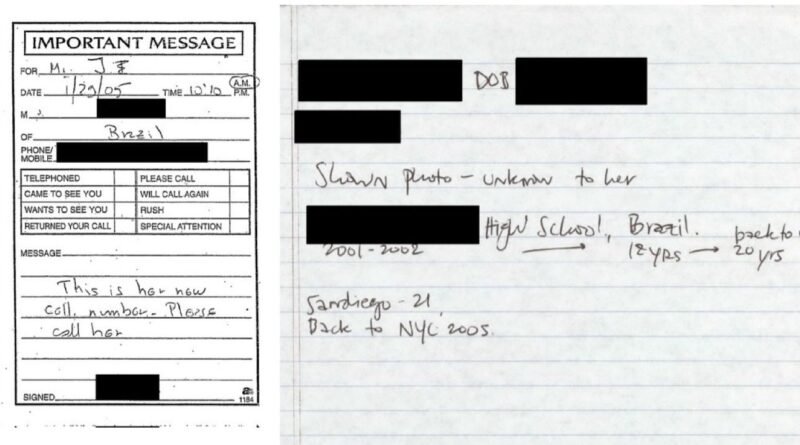 IMPORTANT MESSAGE
FOR Mr. J E
DATE 1/29/05 TIME 10:10 A.M. P.M.
M
OF Brazil
PHONE/
MOBILE
TELEPHONED PLEASE CALL
CAME TO SEE YOU WILL CALL AGAIN
WANTS TO SEE YOU RUSH
RETURNED YOUR CALL SPECIAL ATTENTION
MESSAGE
This is her new
cell. number. Please
call her
SIGNED
1184
DOB
Shown photo - unknown to her
High School, Brazil.
2001-2002 → 18 yrs → back to
20 yrs
Sandiego - 21
Back to NYC 2005.